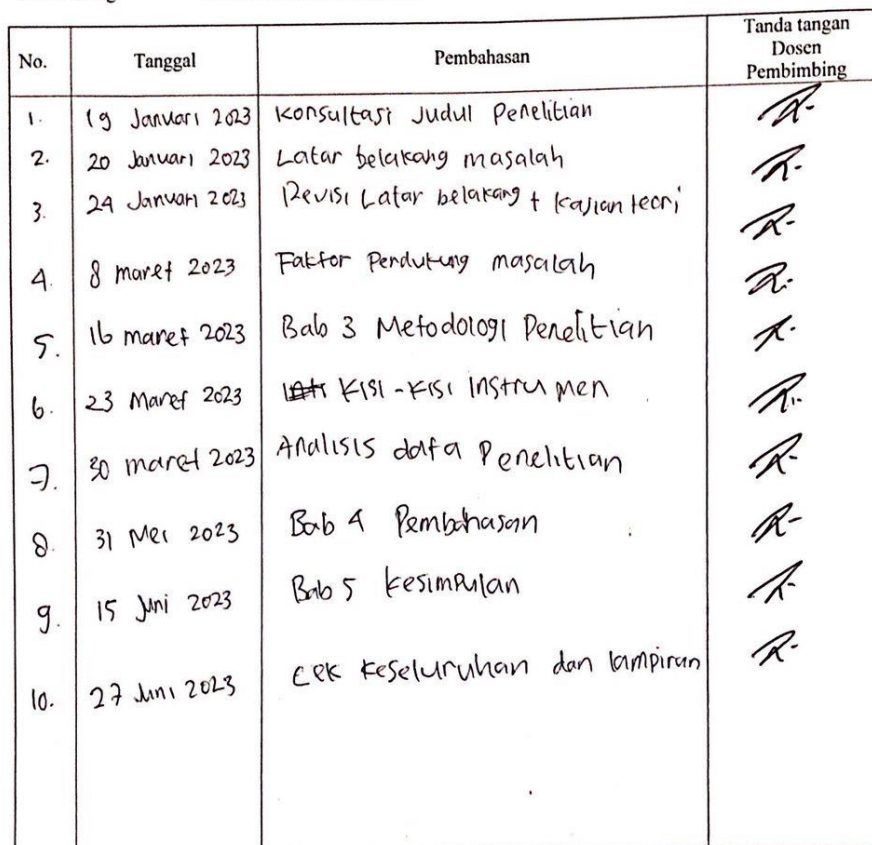 No. Tanggal Pembahasan Tanda tangan
Dosen
Pembimbing
1. 19 Januari 2023 Konsultasi Judul Penelitian
2. 20 Januari 2023 Latar belakang masalah
3. 24 Januari 2023 Revisi Latar belakang + kajian teori
4. 8 maret 2023 Faktor Pendukung masalah
5. 16 maret 2023 Bab 3 Metodologi Penelitian
6. 23 Maret 2023 Kisi-Kisi instrumen
7. 30 maret 2023 Analisis data Penelitian
8. 31 Mei 2023 Bab 4 Pembahasan
9. 15 Juni 2023 Bab 5 kesimpulan
10. 27 Juni 2023 Cek keseluruhan dan lampiran